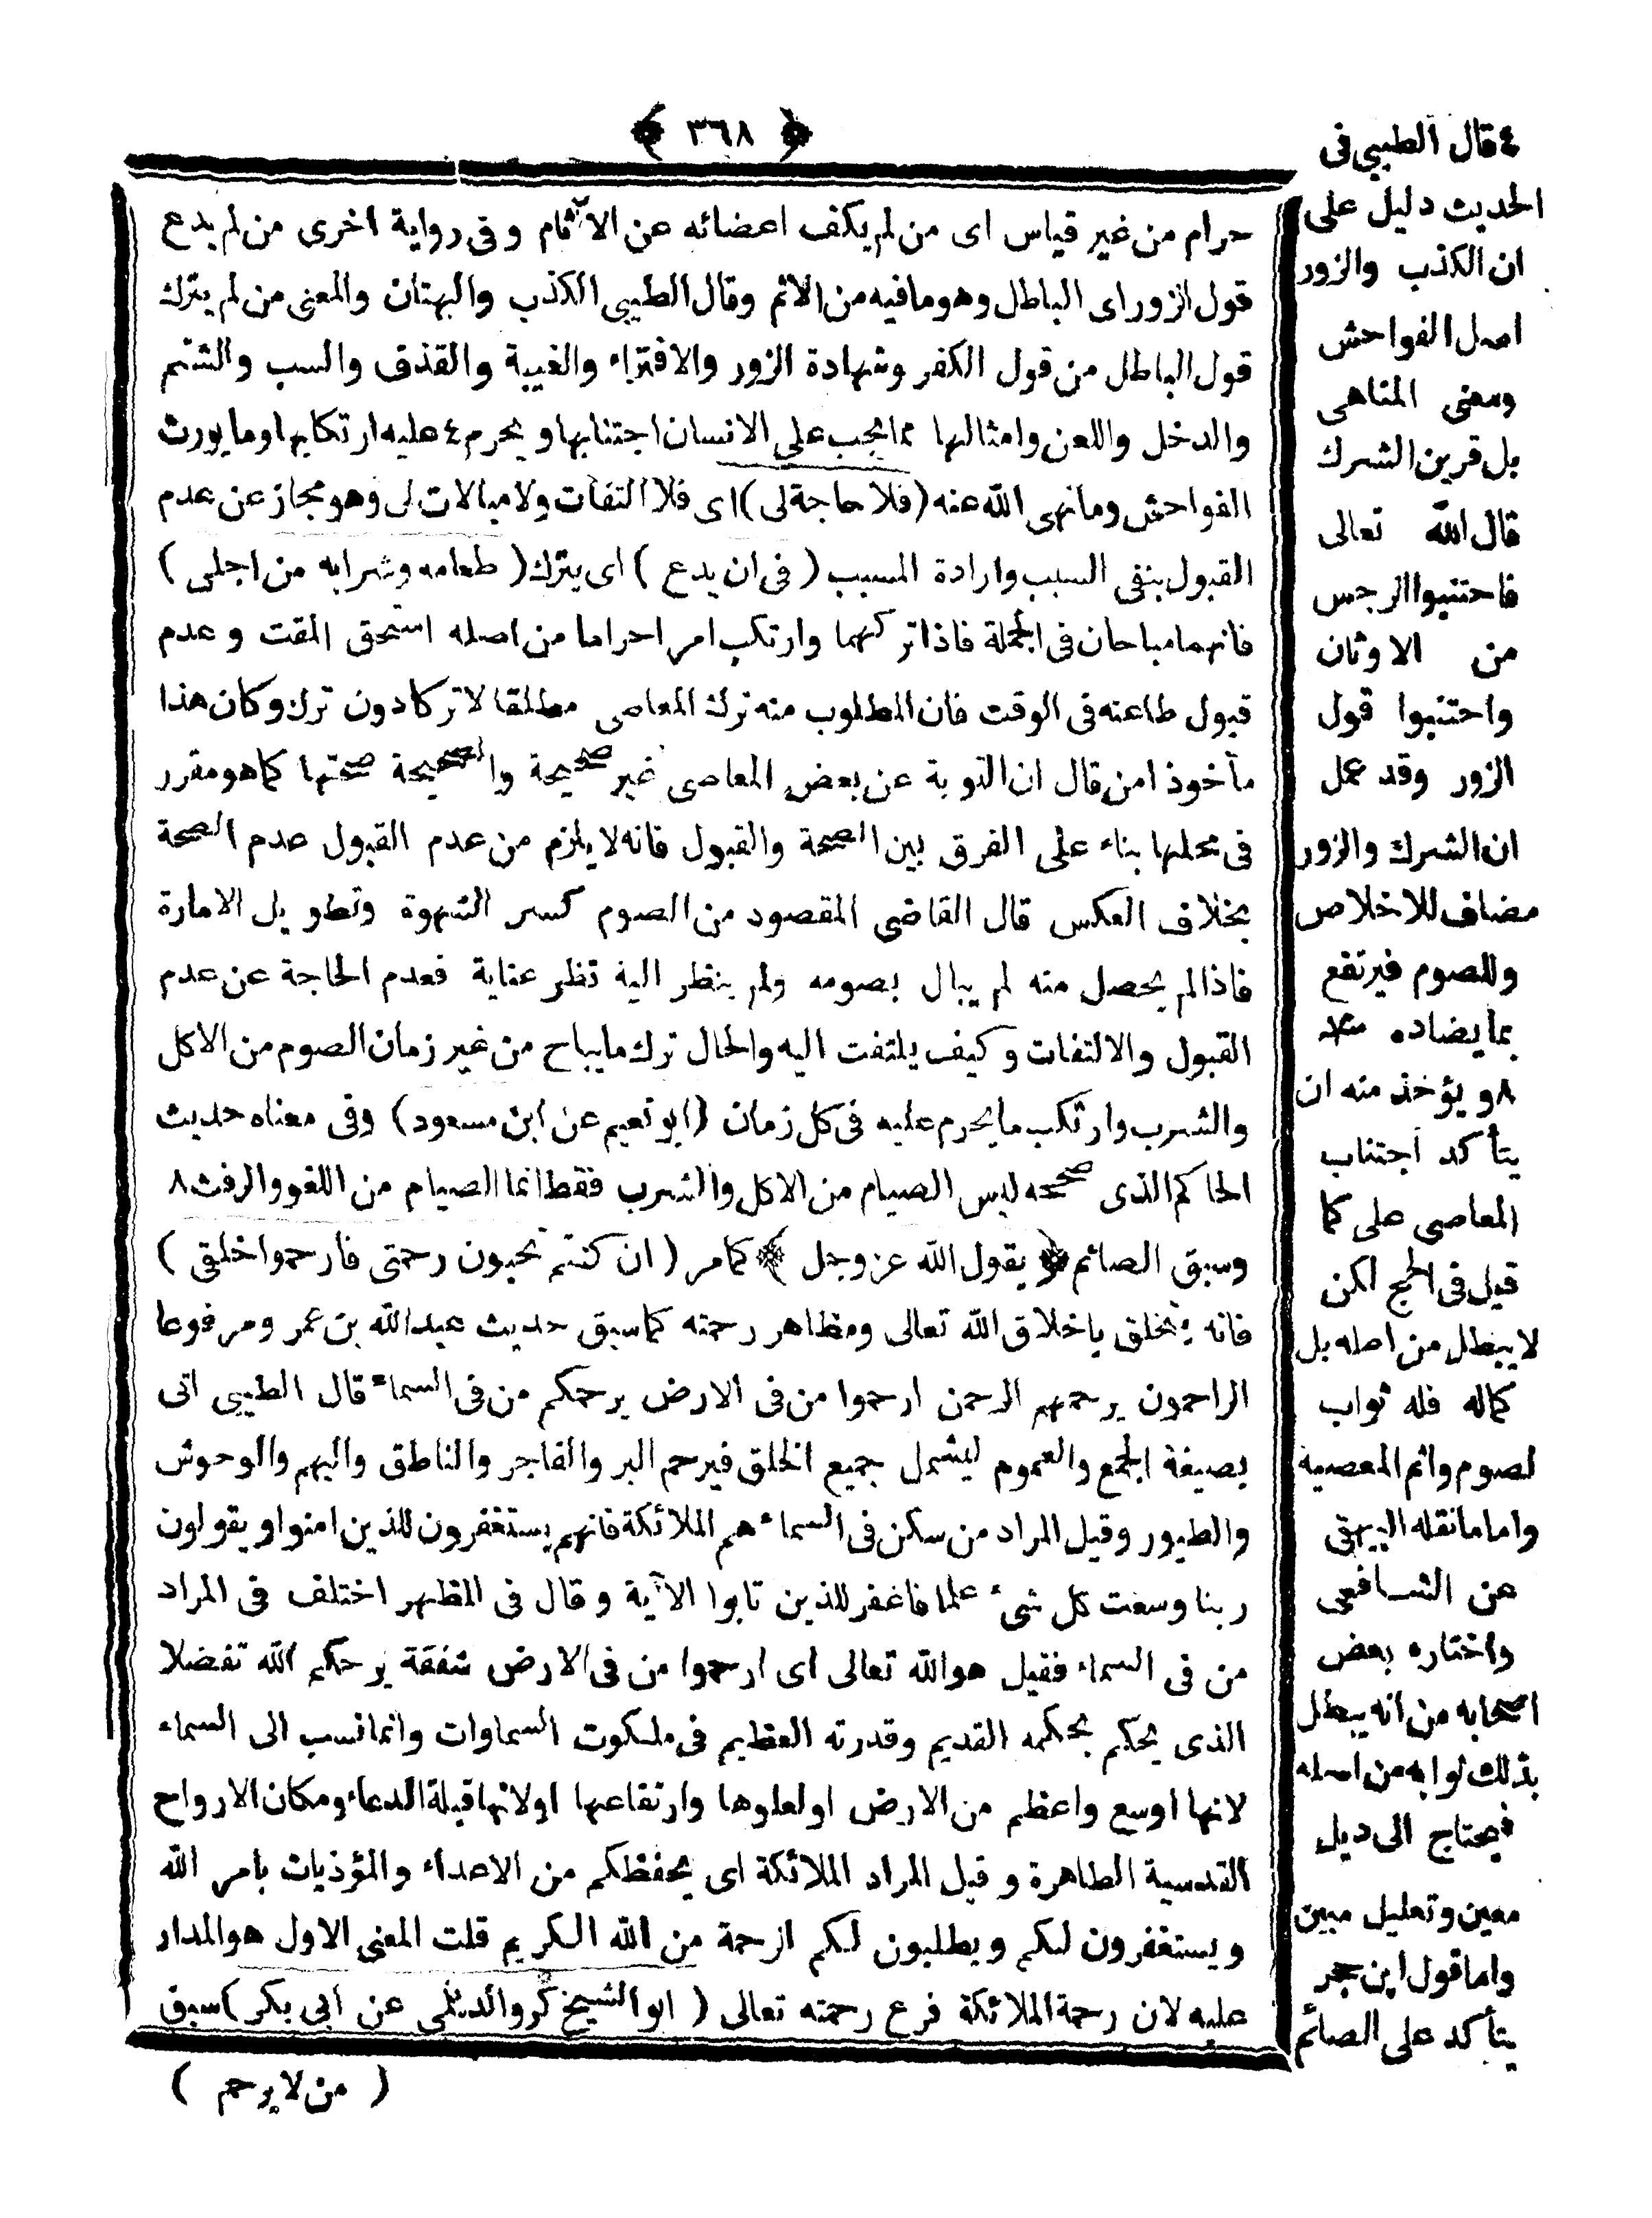 ﴿ ٣٦٨ ﴾
حرام من غير قياس اى من لم يكف اعضائه عن الآثام وفى رواية اخرى من لم يدع
قول الزور اى الباطل وهو مافيه من الاثم وقال الطيبى الكذب والبهتان والمعنى من لم يترك
قول الباطل من قول الكفر وشهادة الزور والافتراء والغيبة والقذف والسب والشتم
والدخل واللعن وامثالها مما يجب على الانسان اجتنابها ويحرم ٤ عليه ارتكابها او ما يورث
الفواحش ومانهى الله عنه (فلا حاجة لى) اى فلا التفات ولا مبالات لى وهو مجاز عن عدم
القبول بنفى السبب وارادة المسبب (فى ان يدع) اى يترك (طعامه وشرابه من اجلى)
فانهما مباحان فى الجملة فاذا تركهما وارتكب امرا حراما من اصله استحق المقت وعدم
قبول طاعته فى الوقت فان المطلوب منه ترك المعاصى مطلقا لا تركا دون ترك وكان هذا
مأخوذا من قال ان التوبة عن بعض المعاصى غير صحيحة والصحيحة صحتها كما هو مقرر
فى محلها بناء على الفرق بين الصحة والقبول فانه لا يلزم من عدم القبول عدم الصحة
بخلاف العكس قال القاضى المقصود من الصوم كسر الشهوة وتطويل الامارة
فاذا لم يحصل منه لم يبال بصومه ولم ينظر اليه نظر عناية فعدم الحاجة عن عدم
القبول والالتفات وكيف يلتفت اليه والحال ترك ما يباح من غير زمان الصوم من الاكل
والشرب وارتكب ما يحرم عليه فى كل زمان (ابو نعيم عن ابن مسعود) وفى معناه حديث
الحاكم الذى صححه ليس الصيام من الاكل والشرب فقط انما الصيام من اللغو والرفث ٨
وسبق الصائم ﴿ يقول الله عز وجل ﴾ كمامر (ان كنتم تحبون رحمتى فارحموا خلقى)
فانه يتخلق باخلاق الله تعالى ومظاهر رحمته كما سبق حديث عبد الله بن عمر ومرفوعا
الراحمون يرحمهم الرحمن ارحموا من فى الارض يرحمكم من فى السماء قال الطيبى اتى
بصيغة الجمع والعموم ليشمل جميع الخلق فيرحم البر والفاجر والناطق والبهم والوحوش
والطيور وقيل المراد من سكن فى السماء هم الملائكة فانهم يستغفرون للذين امنوا ويقولون
ربنا وسعت كل شىء علما فاغفر للذين تابوا الآية وقال فى المظهر اختلف فى المراد
من فى السماء فقيل هو الله تعالى اى ارحموا من فى الارض شفقة يرحمكم الله تفضلا
الذى يحكم بحكمه القديم وقدرته العظيم فى ملكوت السماوات وانما نسب الى السماء
لانها اوسع واعظم من الارض او لعلوها وارتفاعها او لانها قبلة الدعاء ومكان الارواح
القدسية الطاهرة وقيل المراد الملائكة اى يحفظكم من الاعداء والمؤذيات بامر الله
ويستغفرون لكم ويطلبون لكم الرحمة من الله الكريم قلت المعنى الاول هو المدار
عليه لان رحمة الملائكة فرع رحمته تعالى (ابو الشيخ كر والديلمى عن ابى بكر) سبق
(من لا يرحم)
٤ قال الطيبى فى
الحديث دليل على
ان الكذب والزور
اصل الفواحش
ومعنى المناهى
بل قرين الشرك
قال الله تعالى
فاجتنبوا الرجس
من الاوثان
واجتنبوا قول
الزور وقد عمل
ان الشرك والزور
مضاف للاخلاص
وللصوم فيرتفع
بما يضاده منه
٨ ويؤخذ منه ان
يتأكد اجتناب
المعاصى على كما
قيل فى الحج لكن
لا يبطل من اصله بل
كماله فله ثواب
لصوم واثم المعصية
واما ما نقله البيهقى
عن الشافعى
واختاره بعض
اصحابه من انه يبطل
بذلك ثوابه من اصله
فيحتاج الى ديل
معين وتعليل مبين
واما قول ابن حجر
يتأكد على الصائم